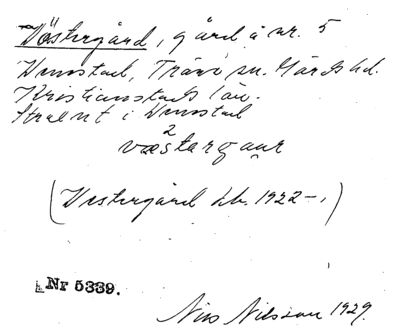 Västergård, gård å nr. 5
Unnstad, Tranå sn. Gärds hd.
Kristianstads län.
i Unnstad
2
væstargaur
(Vestergård hb. 1922–,)
Nr 5339.
Nils Nilsson 1929.